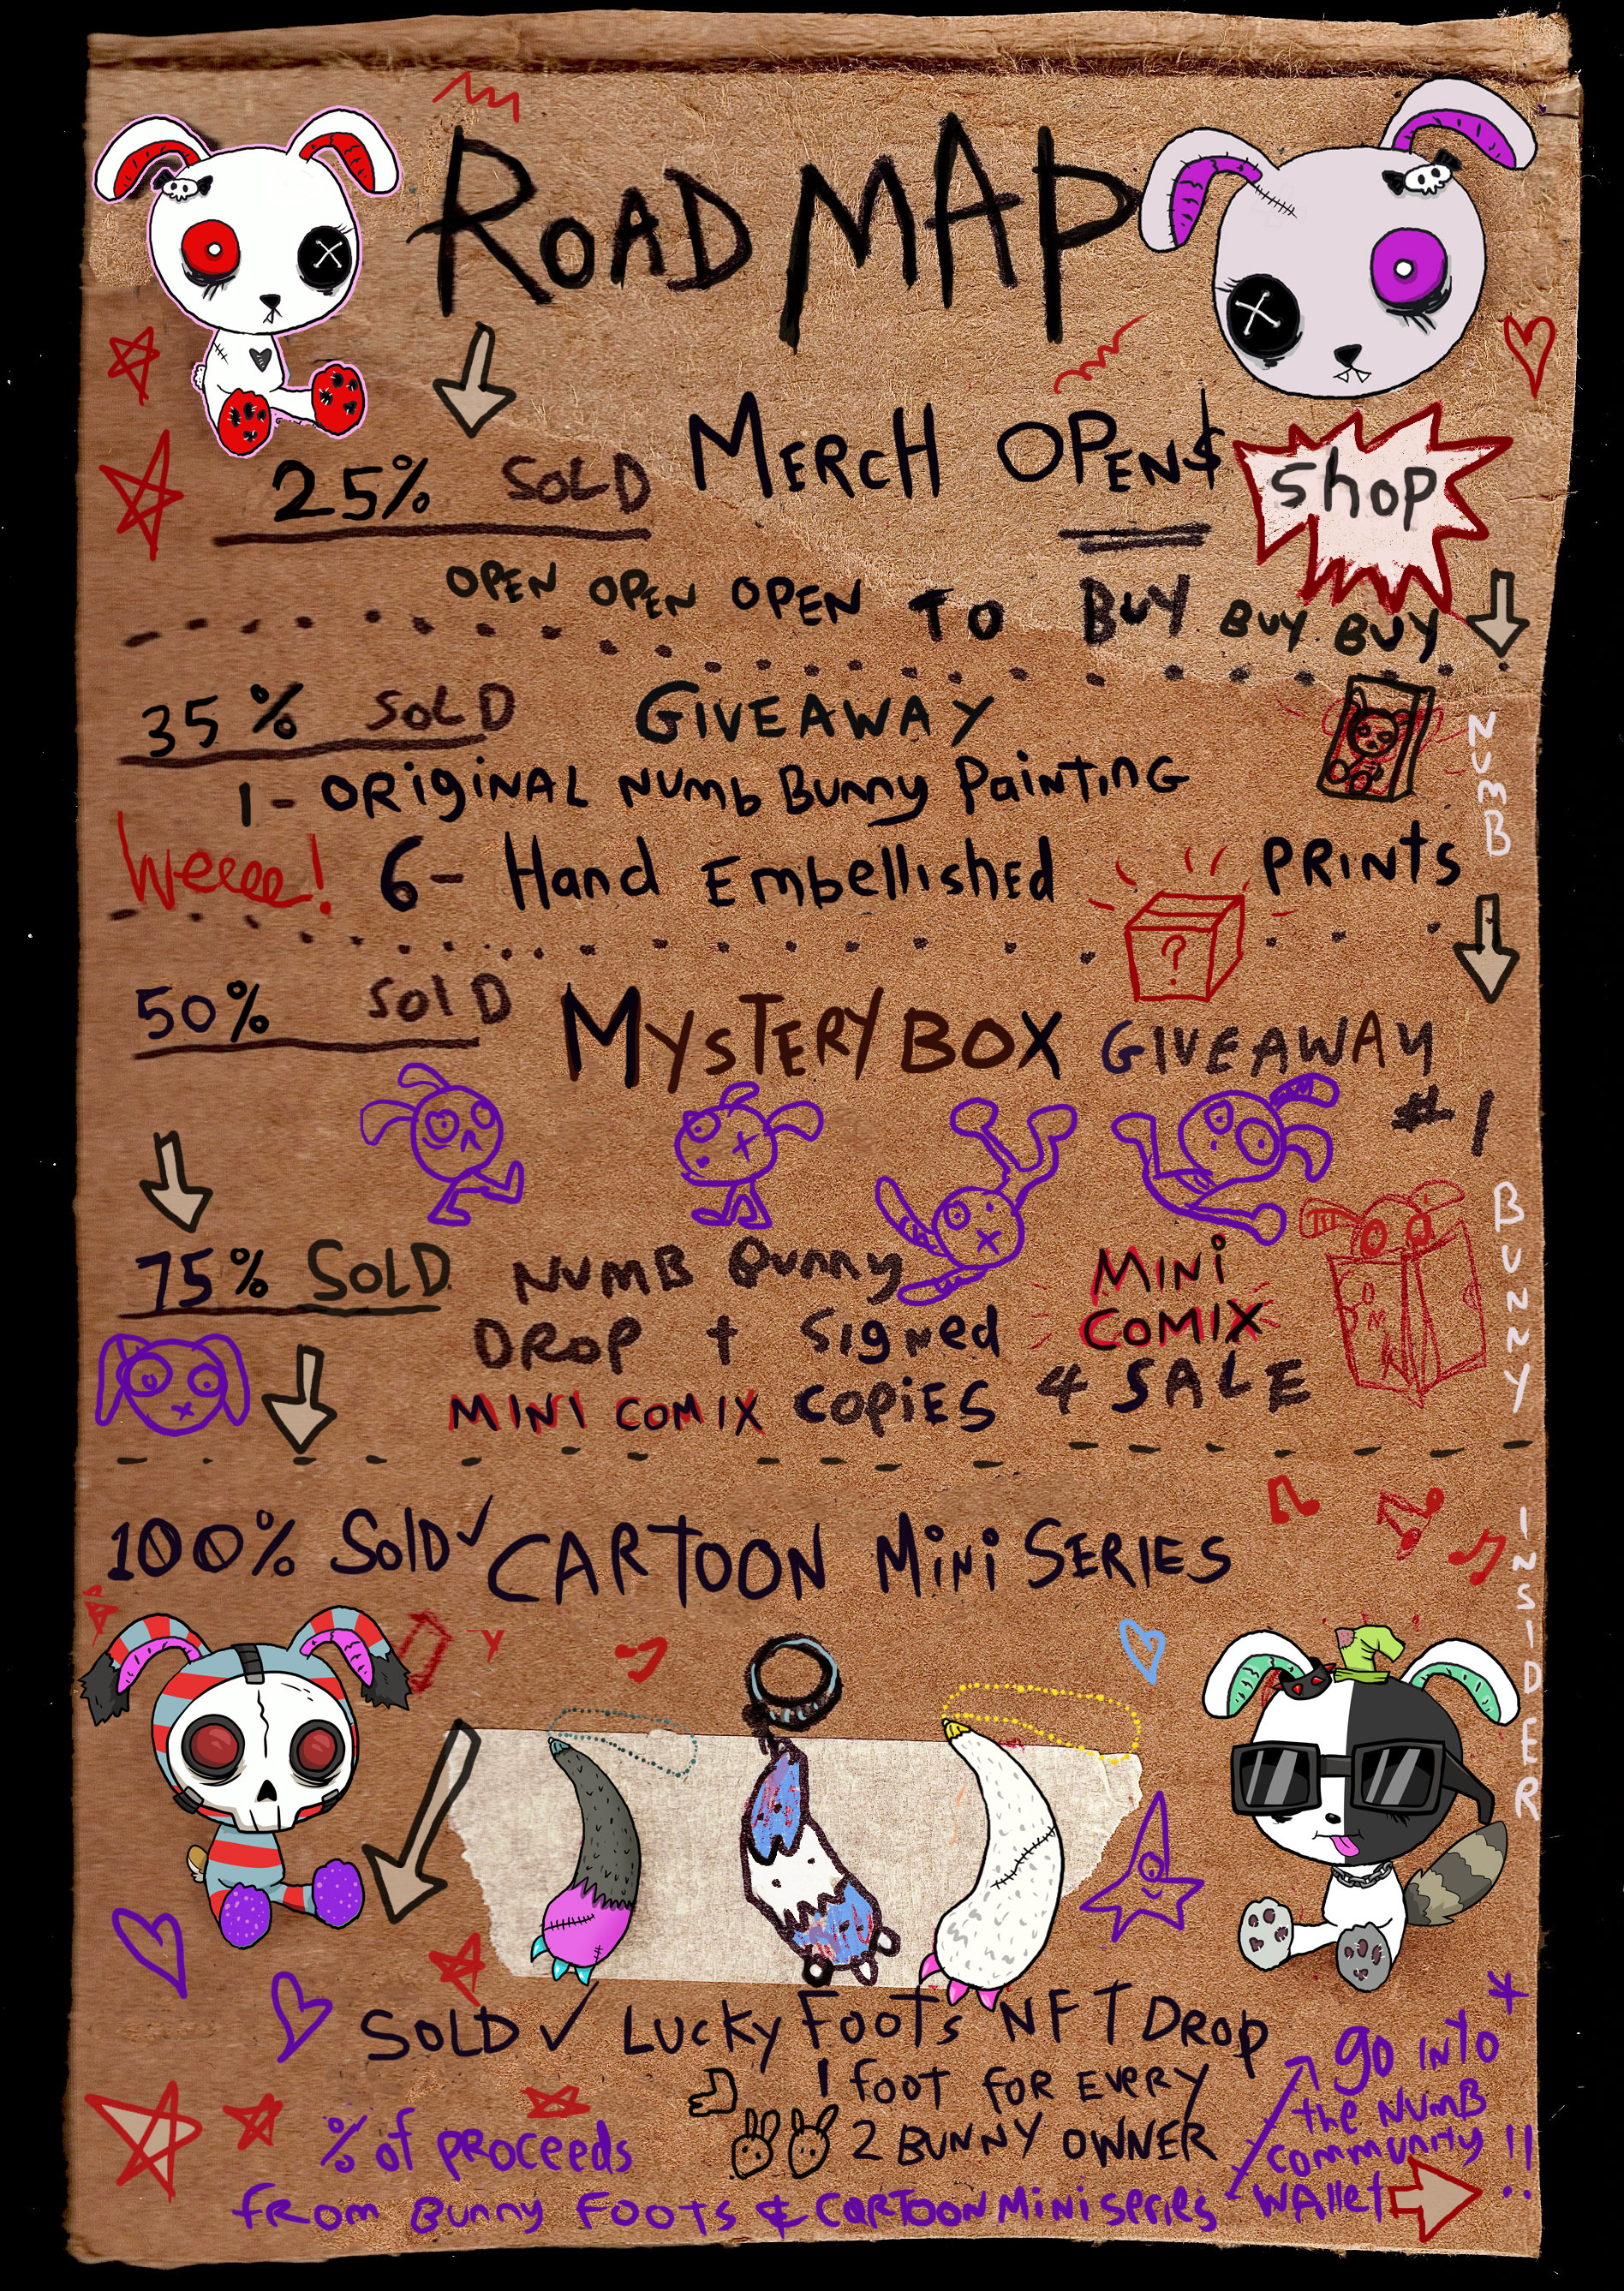 ROAD MAP
25% SOLD MERCH OPEN$ Shop
OPEN OPEN OPEN TO BUY BUY BUY
35% SOLD GIVEAWAY
1- ORIGINAL NUMB BUNNY PAINTING
Weeee! 6- Hand EmbellishEd PRINTS
50% SOLD MYSTERY BOX GIVEAWAY
#1
?
75% SOLD NUMB Bunny
DROP + Signed
MINI COMIX COPIES 4 SALE
MINI
COMIX
100% Sold✓ CARTOON MINI SERIES
SOLD ✓ LUCKY FOOTS NFT DROP
1 FOOT FOR EVERY
2 BUNNY OWNER
% of PROCEEDS
FROM BUNNY FOOTS & CARTOON MINI SERIES
go INTO
the NUMB
COMMUNITY !!
WAllEt
NUMB
BUNNY
INSIDER